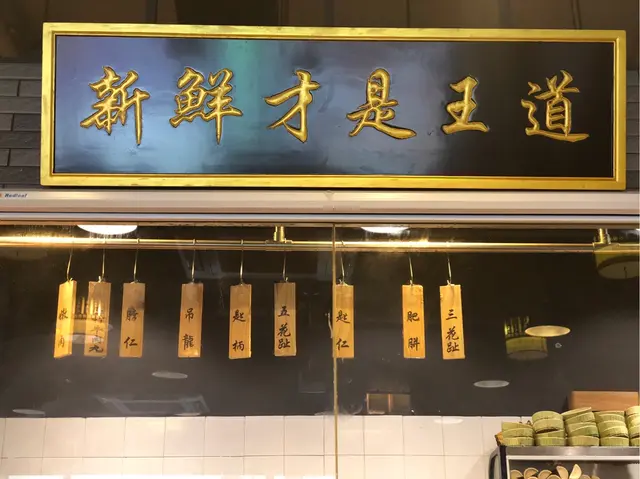 新鮮才是王道
Medical
脖仁
吊龍
匙柄
五花趾
匙仁
肥胼
三花趾